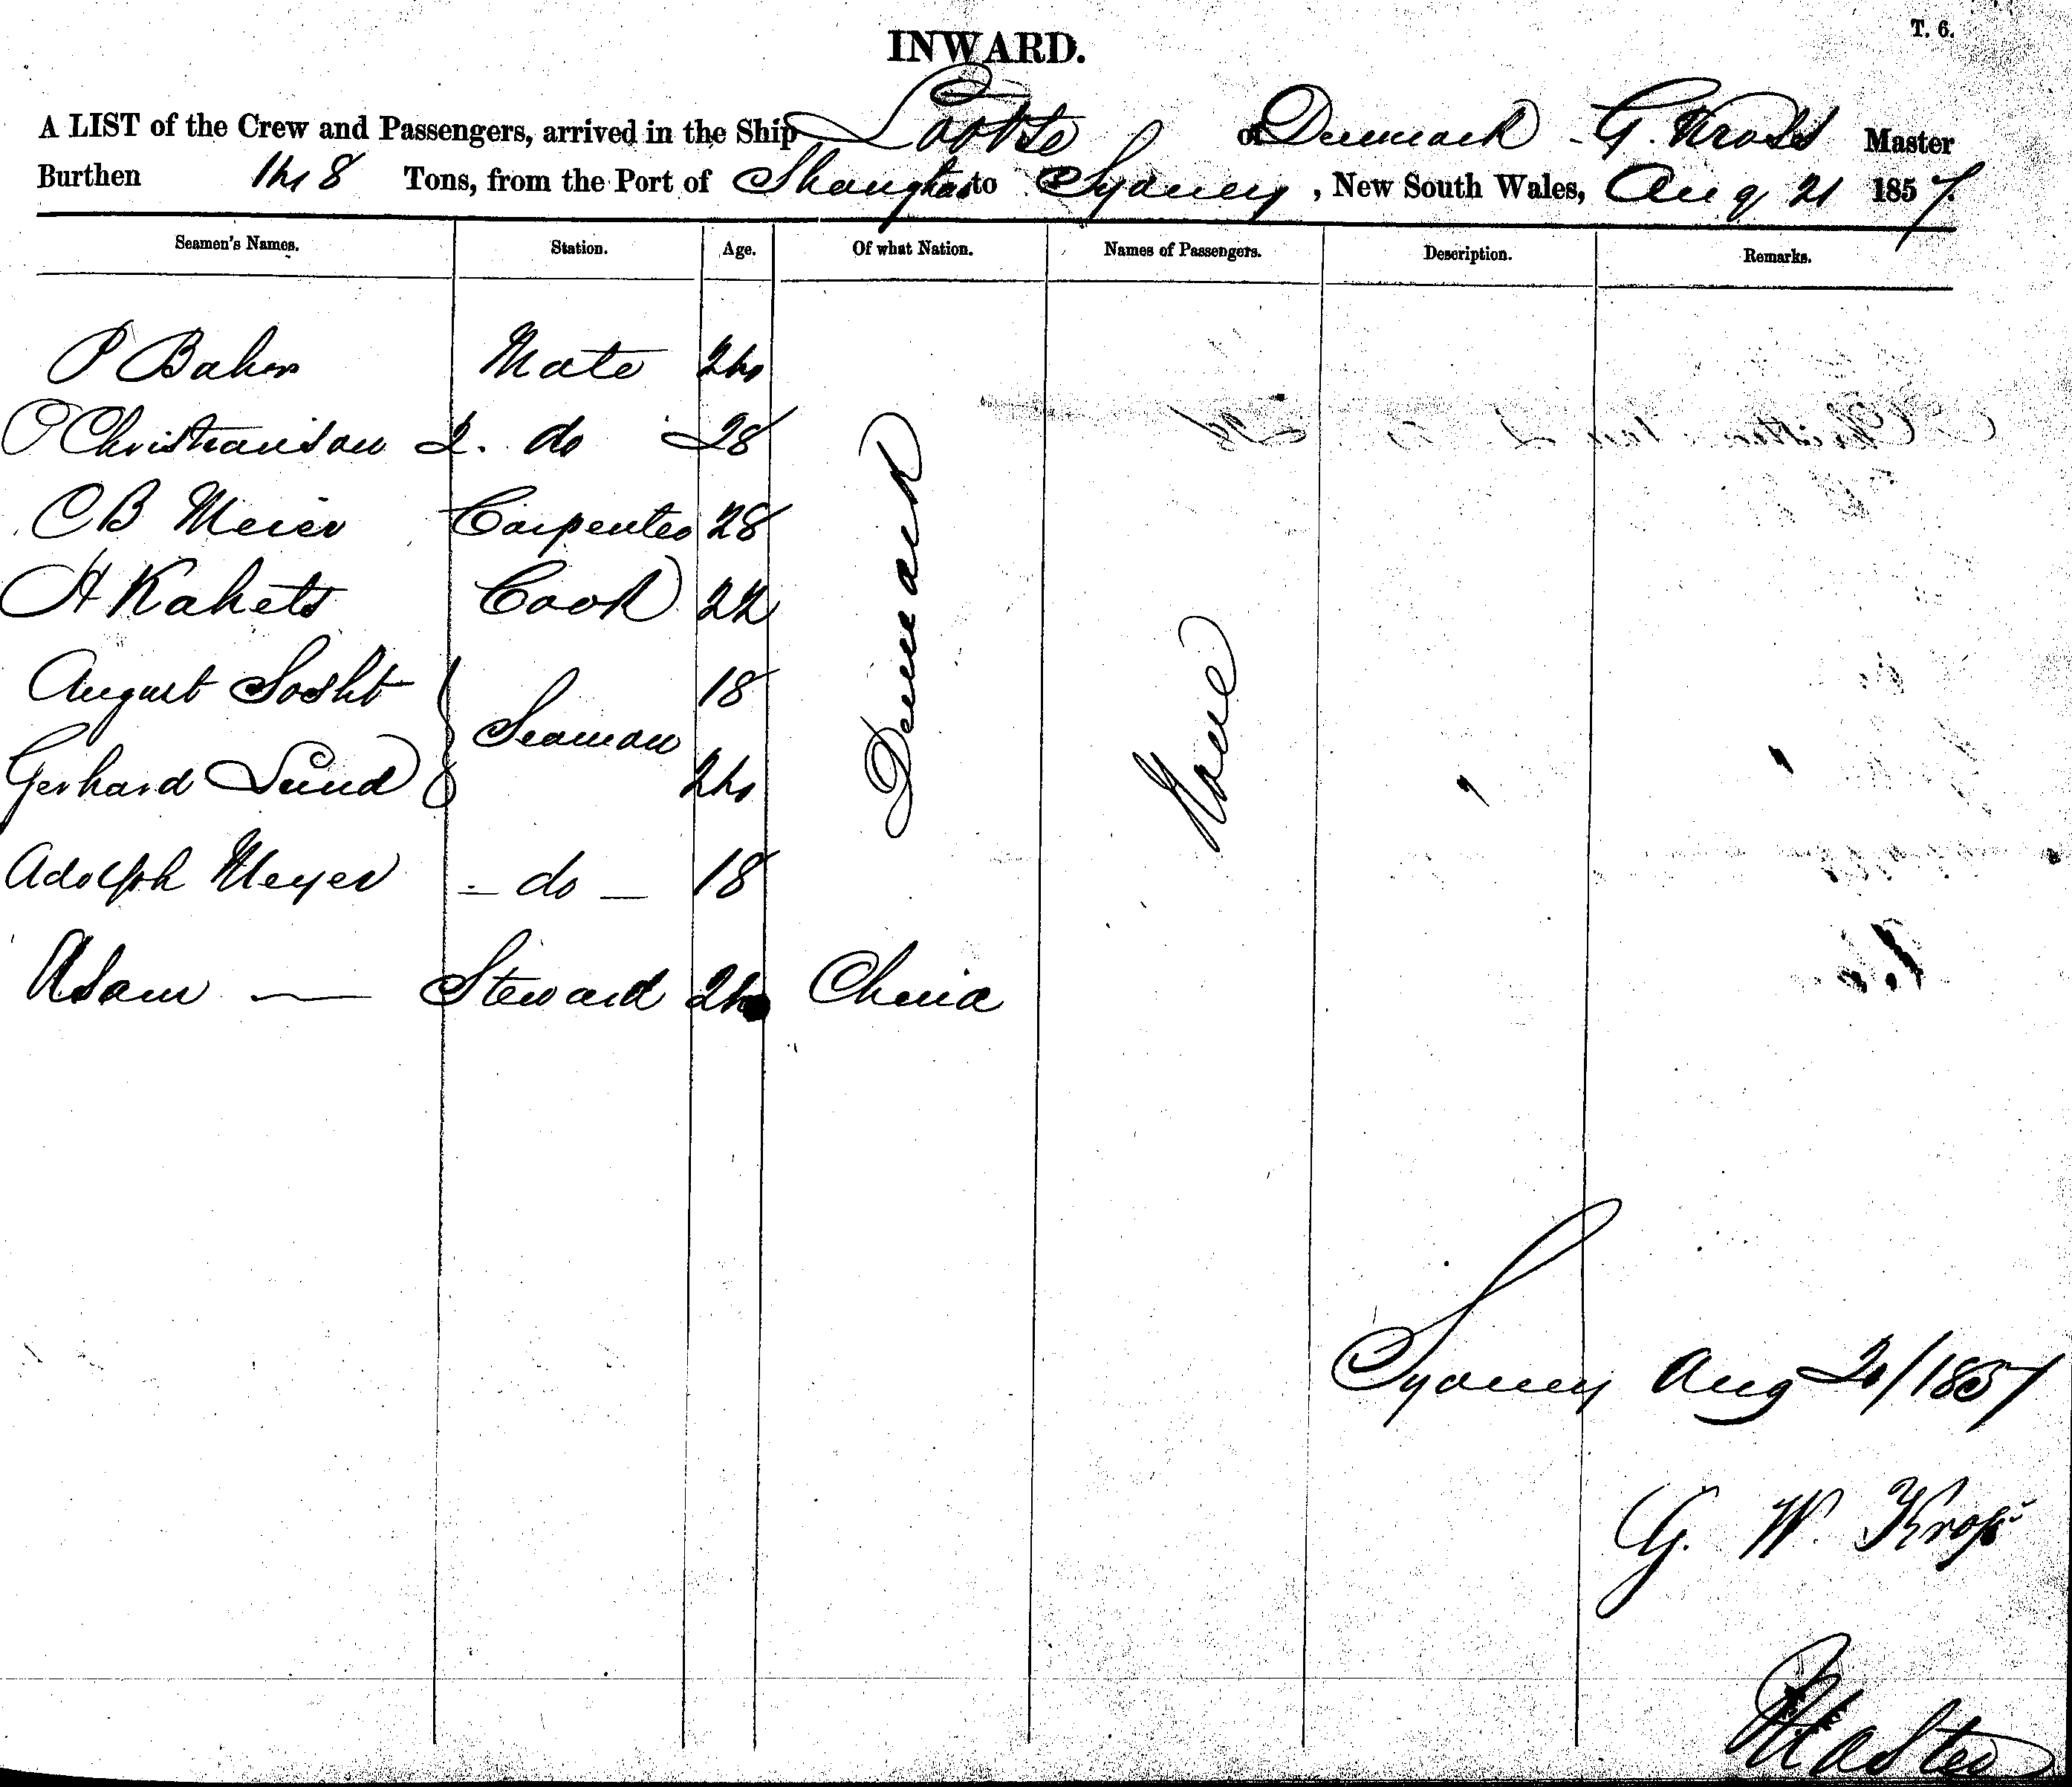 T. 6.
INWARD.
A LIST of the Crew and Passengers, arrived in the Ship Lootse of Denmark G. Kross Master
Burthen 148 Tons, from the Port of Shanghai to Sydney, New South Wales, Aug 21 1857.
Seamen's Names. Station. Age. Of what Nation. Names of Passengers. Description. Remarks.
P Baker Mate 24
P Christianson 2. do 28
C B Meier Carpenter 28
H Kahets Cook 22
August Sosht 18
Seaman
Gerhard Lund 24
Denmark
None
Adolph Meyer - do - 18
Adam — Steward 24 China
Sydney Aug 20/1857
G. W. Kross
Master